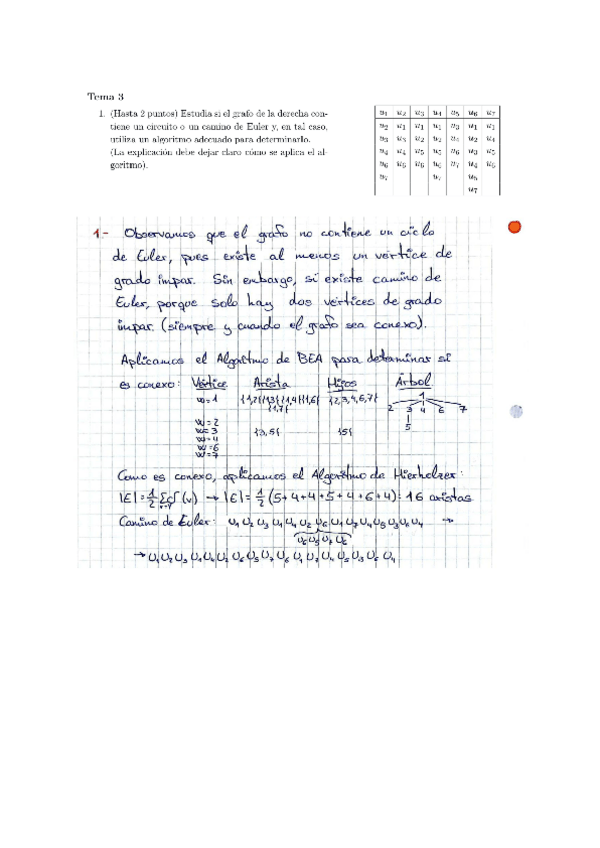 Tema 3
1. (Hasta 2 puntos) Estudia si el grafo de la derecha con-
tiene un circuito o un camino de Euler y, en tal caso,
utiliza un algoritmo adecuado para determinarlo.
(La explicación debe dejar claro cómo se aplica el al-
goritmo).
u1 u2 u3 u4 u5 u6 u7
u2 u1 u1 u1 u3 u1 u1
u3 u3 u2 u2 u4 u2 u4
u4 u4 u5 u5 u6 u3 u5
u6 u6 u6 u6 u7 u4 u6
u7 u7 u5
u7
1.- Observamos que el grafo no contiene un ciclo
de Euler, pues existe al menos un vértice de
grado impar. Sin embargo, sí existe camino de
Euler, porque solo hay dos vértices de grado
impar. (siempre y cuando el grafo sea conexo).
Aplicamos el Algoritmo de BEA para determinar si
es conexo: Vértice Arista Hijos Árbol
w=1 {1,2}{1,3}{1,4}{1,6} {2,3,4,6,7} 1
{1,7} 2 3 4 6 7
w=2
w=3 {3,5} {5} 5
w=4
w=6
w=7
Como es conexo, aplicamos el Algoritmo de Hierholzer:
|E|=1/2 Σ δ(v) → |E|=1/2 (5+4+4+5+4+6+4)=16 aristas
Camino de Euler: U1 U2 U3 U1 U4 U2 U6 U1 U7 U4 U5 U3 U6 U4 →
U6 U5 U7 U6
→ U1 U2 U3 U1 U4 U2 U6 U5 U7 U6 U1 U7 U4 U5 U3 U6 U4